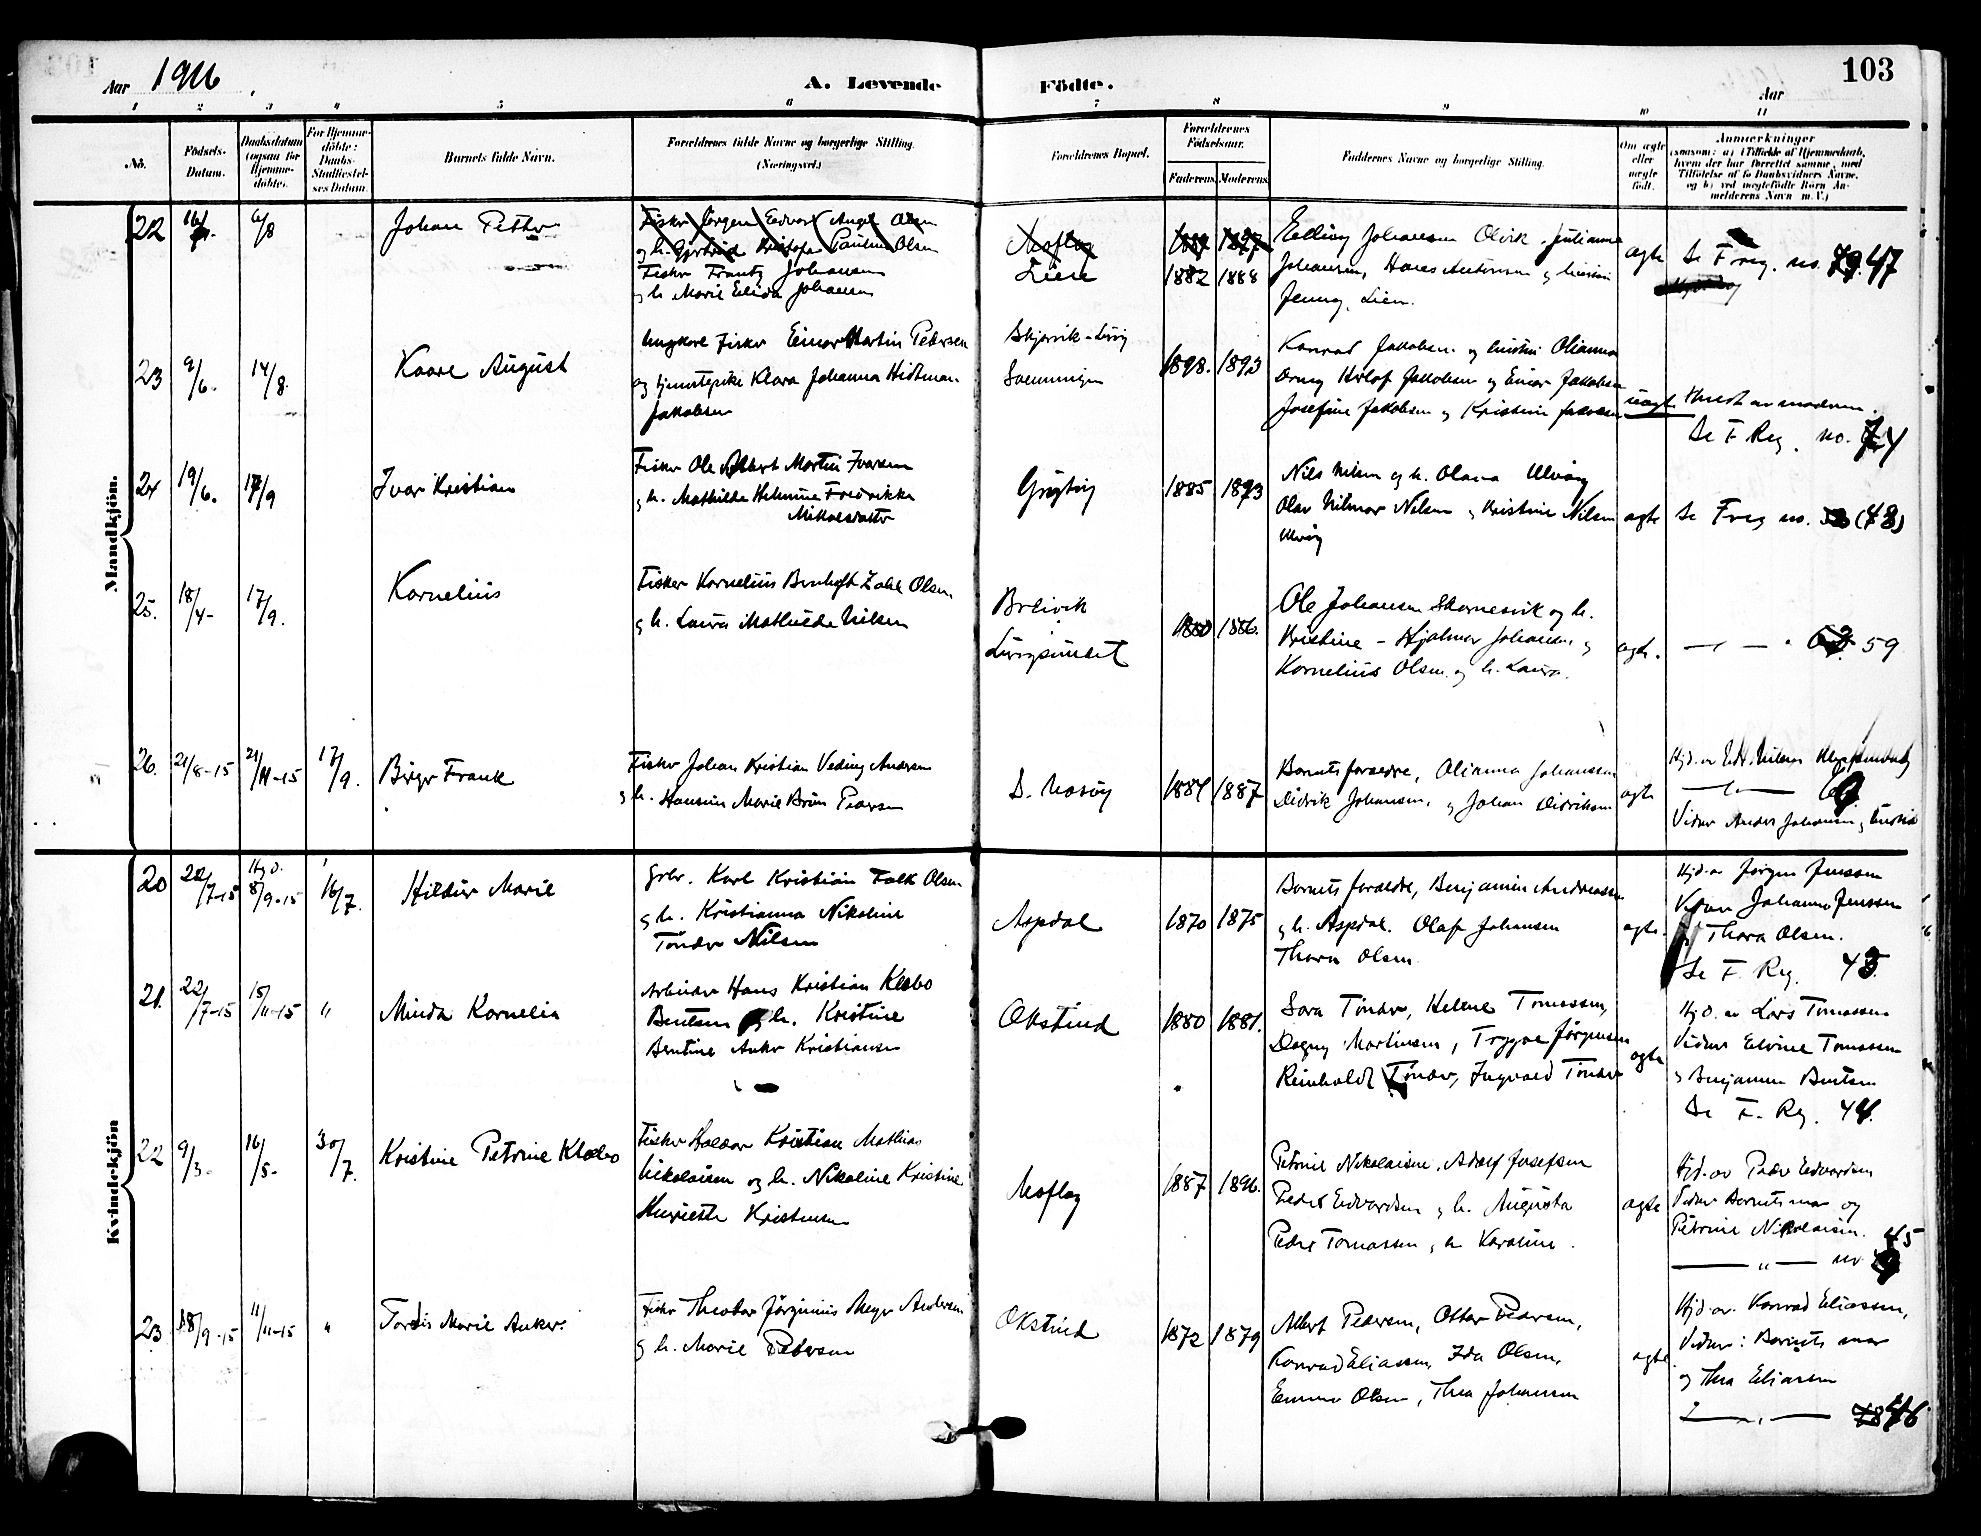 Aar 1916.
A. Levende Födte.
103
Aar
1 2 3 4 5 6 7 8 9 10 11
No.
Födsels-Datum.
Daabsdatum (ogsaa for Hjemmedöbte).
For Hjemmedöbte: Daabs-Stadfæstelses Datum.
Barnets fulde Navn.
Forældrenes fulde Navne og borgerlige Stilling. (Næringsvei.)
Forældrenes Bopæl.
Forældrenes Födselsaar.
Faderens. Moderens.
Faddernes Navne og borgerlige Stilling.
Om ægte eller uægte födt.
Anmærkninger
(saasom: a) i Tilfælde af Hjemmedaab, hvem der har forrettet samme, med Tilföielse af to Daabsvidners Navne, og b) ved uægtefödte Börn Anmelderens Navn m. V.)
Mandkjön.
22 6/8 Johan Petter
Fisker Jörgen Edvard Angel Olsen
og h. Kristofa Pauline Olsen
Fisker Frantz Johansen
og h. Marie Elida Johansen
Moflag
Lien
1887 1897
1882 1888
Elling Johansen Olvik, Julianna
Johansen, Hans Antonsen og hustru
Jenny, Lien.
ægte
Se F reg. no. 47
23 9/6. 14/8. Kaare August
Ungkarl fisker Einar Martin Petersen
og tjenestepike Klara Johanna Hidtman
Jakobsen
Skjervik - Lurøy
1898. 1893
Konrad Jakobsen og hustru Olianna
Drug Hrolof Jakobsen og Einar Jakobsen
Josefine Jakobsen og Kristine Jakobsen
uægte
Anmeldt av moderen.
Se F Reg. no. 74
24 19/6. 17/9 Ivar Kristian
Fisker Ole Albert Martin Ivarsen
og h. Mathilde Helmine Fredrikke
Mikalsdatter
1885 1893
Nils Nilsen og h. Olava Ulvøy
Olav Hilmar Nilsen og Kristine Nilsen
Ulvøy
ægte
Se F reg no. (43)
25. 18/4- 17/9. Kornelius
Fisker Kornelius Benhoft Zahl Olsen
og h. Laura Mathilde Nilsen
Breivik
Lurøysundet
1880 1886.
Ole Johansen Skarnesvik og h.
Kristine - Hjalmar Johansen og
Kornelius Olsen og h. Laura.
ægte.
59
26. 21/8-15 21/11-15 17/9. Birger Frank
Fisker Johan Kristian Veding Andersen
og h. Hansine Marie Brun Pedersen
S. Nesøy
1884 1887
Barnets forældre, Olianna Johanssen
Didrik Johansen, og Johan Didriksen
ægte
Vidner Anders Johansen og hustru
Kvindekjön
20 22/7-15 Hj.d. 8/9-15 16/7. Hildur Marie
Grbr. Karl Kristian Falk Olsen
og h. Kristianna Nikoline
Tönder Nilsen
Aspdal
1870 1875
Barnets forældre, Benjamin Andreassen
og h. Aspdal. Olaf Johansen
Thora Olsen
ægte.
Hjd. av Jørgen Jenssen
Vidner Johanna Jenssen
og Thora Olsen.
Se F. Reg. 43
21. 22/7-15 15/11-15 " Minda Kornelia
Arbeider Hans Kristian Klæbo
Bentsen og h. Kristine
Bentine Anker Kristiansen
Okstind
1880 1881.
Sara Tönder, Helene Tomassen,
Dagny Martinsen, Trygve Jørgensen
Reinholdt Tönder, Ingvald Tönder
ægte
Hjd. av Lars Tomassen
Vidner Elvine Tomassen
og Benjamin Bentsen
Se F. Reg. 44.
22 9/3- 16/5- 30/7. Kristine Petrine Klæbo
Fisker Haldor Kristian Mathias
Nikolaisen og h. Nikoline Kristine
Henriette Kristensen
Moflag
1887 1896.
Petrine Nikolaisen, Adolf Josefsen
Peder Edvardsen og h. Augusta
Peder Tomassen og h. Karoline.
ægte
Hjd. av Peder Edvardsen
Vidner Barnets mor og
Petrine Nikolaisen.
" no 45
23 18/9-15 11/11-15 " Tordis Marie Anker.
Fisker Theodor Jørginius Meyer Andersen
og h. Marie Pedersen
Okstind
1872 1879
Albert Pedersen, Ottar Pedersen,
Konrad Eliassen, Ida Olsen,
Emma Olsen, Thea Johansen
ægte
Hjd. av. Konrad Eliassen,
Vidner: Barnets mor
og Thea Eliassen
46